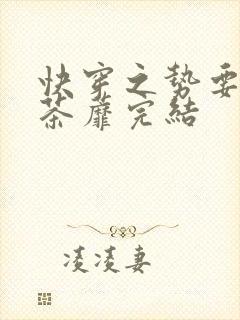 快穿之势要
荼蘼完结
凌凌妻